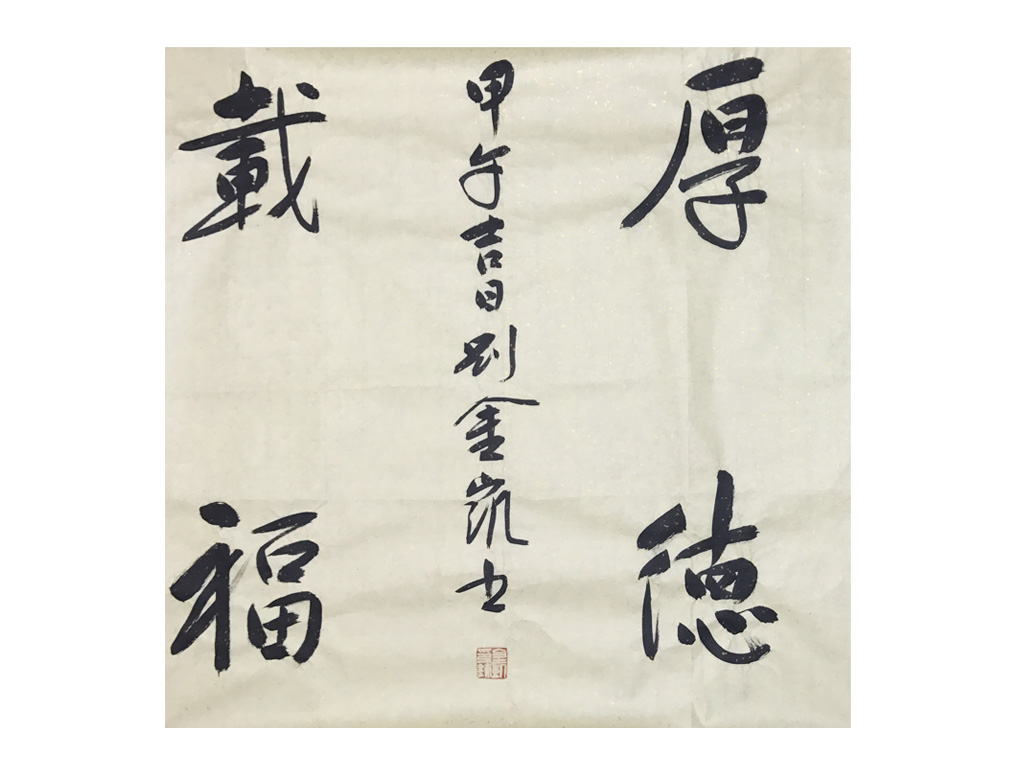 厚德
甲午吉日劉金凱书
載福